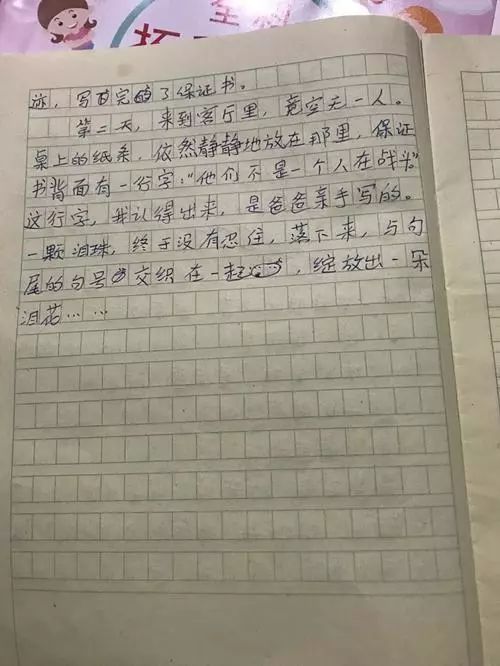 迹，写完了保证书。
第二天，来到客厅里，竟空无一人。
桌上的纸条，依然静静地放在那里，保证
书背面有一行字：“他们不是一个人在战斗”
这行字，我认得出来，是爸爸亲手写的。
一颗泪珠，终于没有忍住，落下来，与句
尾的句号交织在一起，绽放出一朵
泪花……